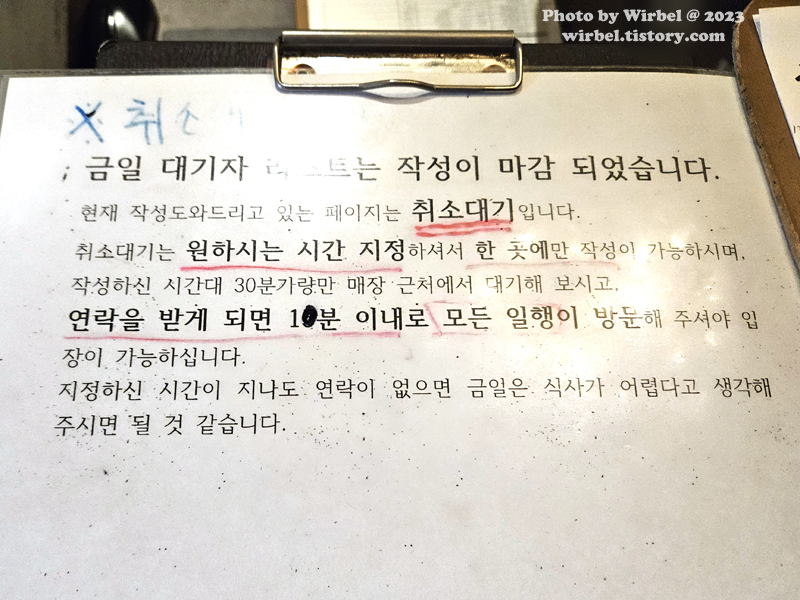 Photo by Wirbel @ 2023
wirbel.tistory.com
※ 취소
금일 대기자 리스트는 작성이 마감 되었습니다.
현재 작성도와드리고 있는 페이지는 취소대기입니다.
취소대기는 원하시는 시간 지정하셔서 한 곳에만 작성이 가능하시며,
작성하신 시간대 30분가량만 매장 근처에서 대기해 보시고,
연락을 받게 되면 10분 이내로 모든 일행이 방문해 주셔야 입
장이 가능하십니다.
지정하신 시간이 지나도 연락이 없으면 금일은 식사가 어렵다고 생각해
주시면 될 것 같습니다.